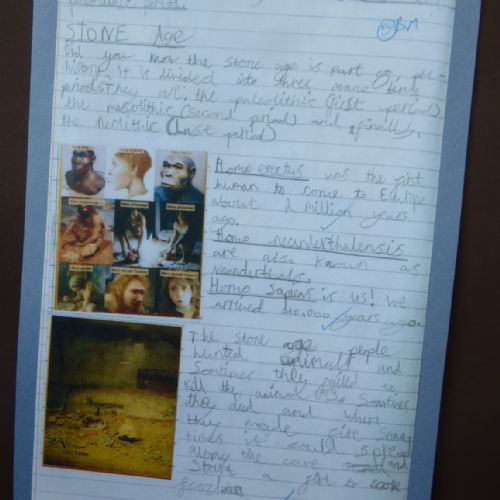 period.
STONE Age
Did you know the stone age is part of pre-
history it is divided into three mane time
periods They are: the paleolithic (first period)
the mesolithic (second period) and finally,
the Neolithic (last period)
Homo erectus was the first
human to come to Europe
about 2 million years
ago.
Homo neanderthalensis
are also known as
Neanderthals.
Homo Sapiens is us! We
arrived 40,000 years ago.
The Stone age people
hunted animals and
Somtimes they failed to
kill the animal So Somtimes
they died and when
they made fire some
times it could spread
along the cave and
Start a fire to cook
food